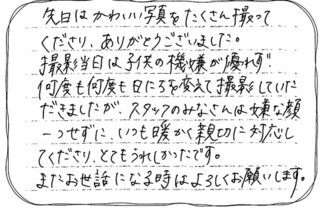 先日はかわいい写真をたくさん撮って
くださり、ありがとうございました。
撮影当日は子供の機嫌が優れず
何度も何度も日にちを変えて撮影していた
だきましたが、スタッフのみなさんは嫌な顔
一つせずに、いつも暖かく親切に対応し
てくださり、とてもうれしかったです。
またお世話になる時はよろしくお願いします。